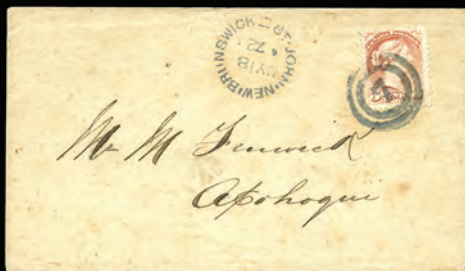 ST. JOHN • NEW • BRUNSWICK
MY 18
72
7
Mr M Fenwick
Apohaqui